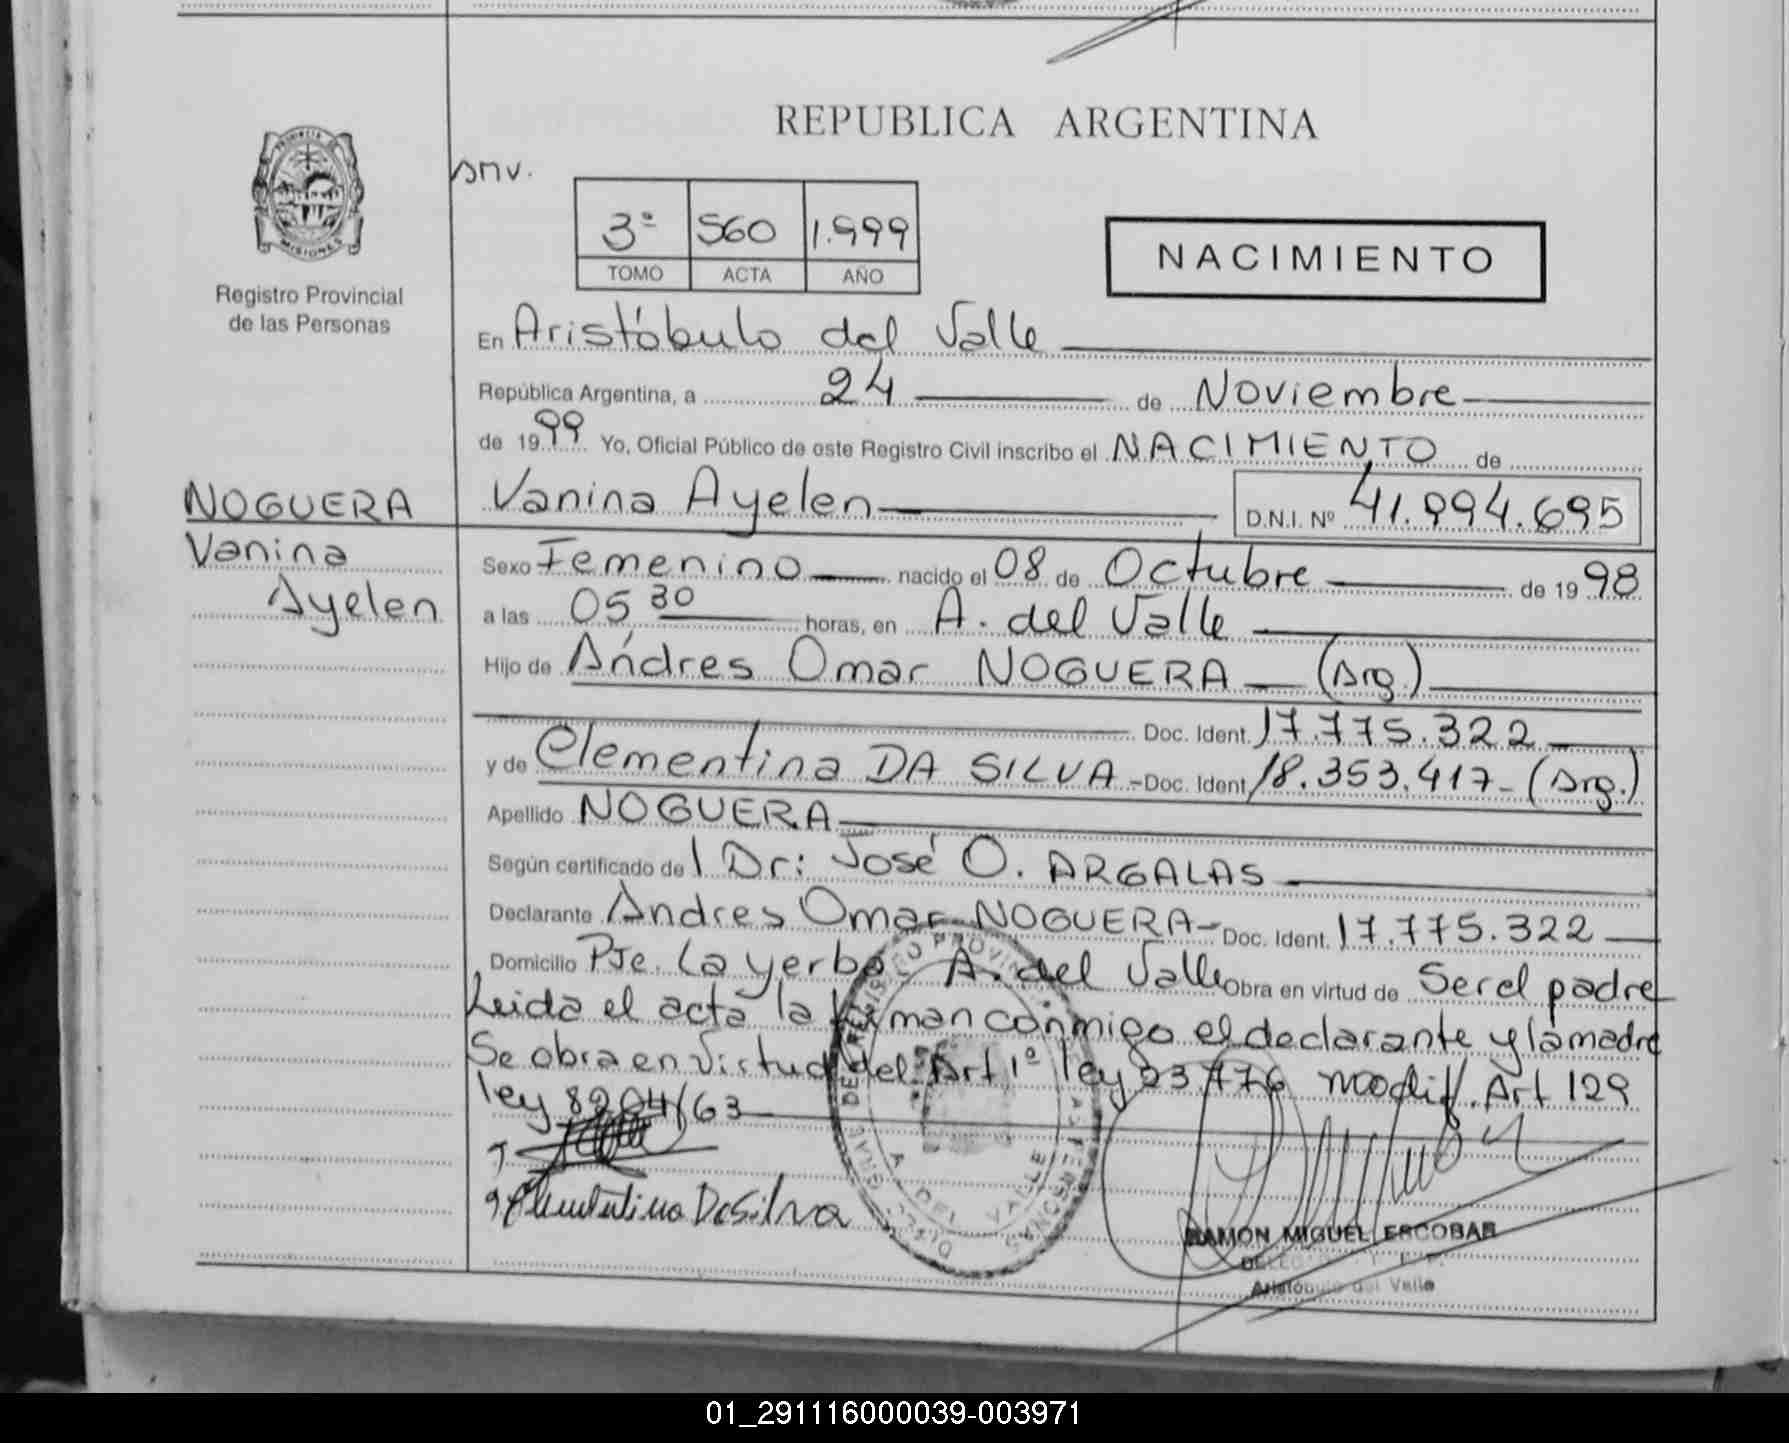 REPUBLICA ARGENTINA
PROVINCIA DE
MISIONES
Registro Provincial
de las Personas
snv.
3º 560 1.999
TOMO ACTA AÑO
NACIMIENTO
En Aristóbulo del Valle
República Argentina, a 24 de Noviembre
de 1999 Yo, Oficial Público de este Registro Civil inscribo el NACIMIENTO de
NOGUERA
Vanina
Ayelen
Vanina Ayelen D.N.I. Nº 41.994.695
Sexo Femenino nacido el 08 de Octubre de 1998
a las 05 30 horas, en A. del Valle
Hijo de Andres Omar NOGUERA (Arg.)
Doc. Ident. 17.775.322
y de Clementina DA SILVA - Doc. Ident 18.353.417 - (Arg.)
Apellido NOGUERA
Según certificado de l Dr: José O. ARGALAS
Declarante Andres Omar NOGUERA - Doc. Ident. 17.775.322
Domicilio Pje. La yerba A. del Valle Obra en virtud de Ser el padre
Leida el acta la firman conmigo el declarante y la madre
Se obra en virtud del Art 1º ley 23.776 modif. Art 129
ley 8204/63
Clementina DaSilva
A. DEL VALLE
RAMON MIGUEL ESCOBAR
Aristóbulo del Valle
01_291116000039-003971